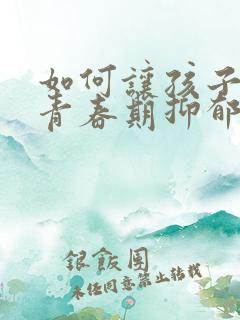 如何讓孩子
青春期抑郁
銀飯團
未经同意禁止转载